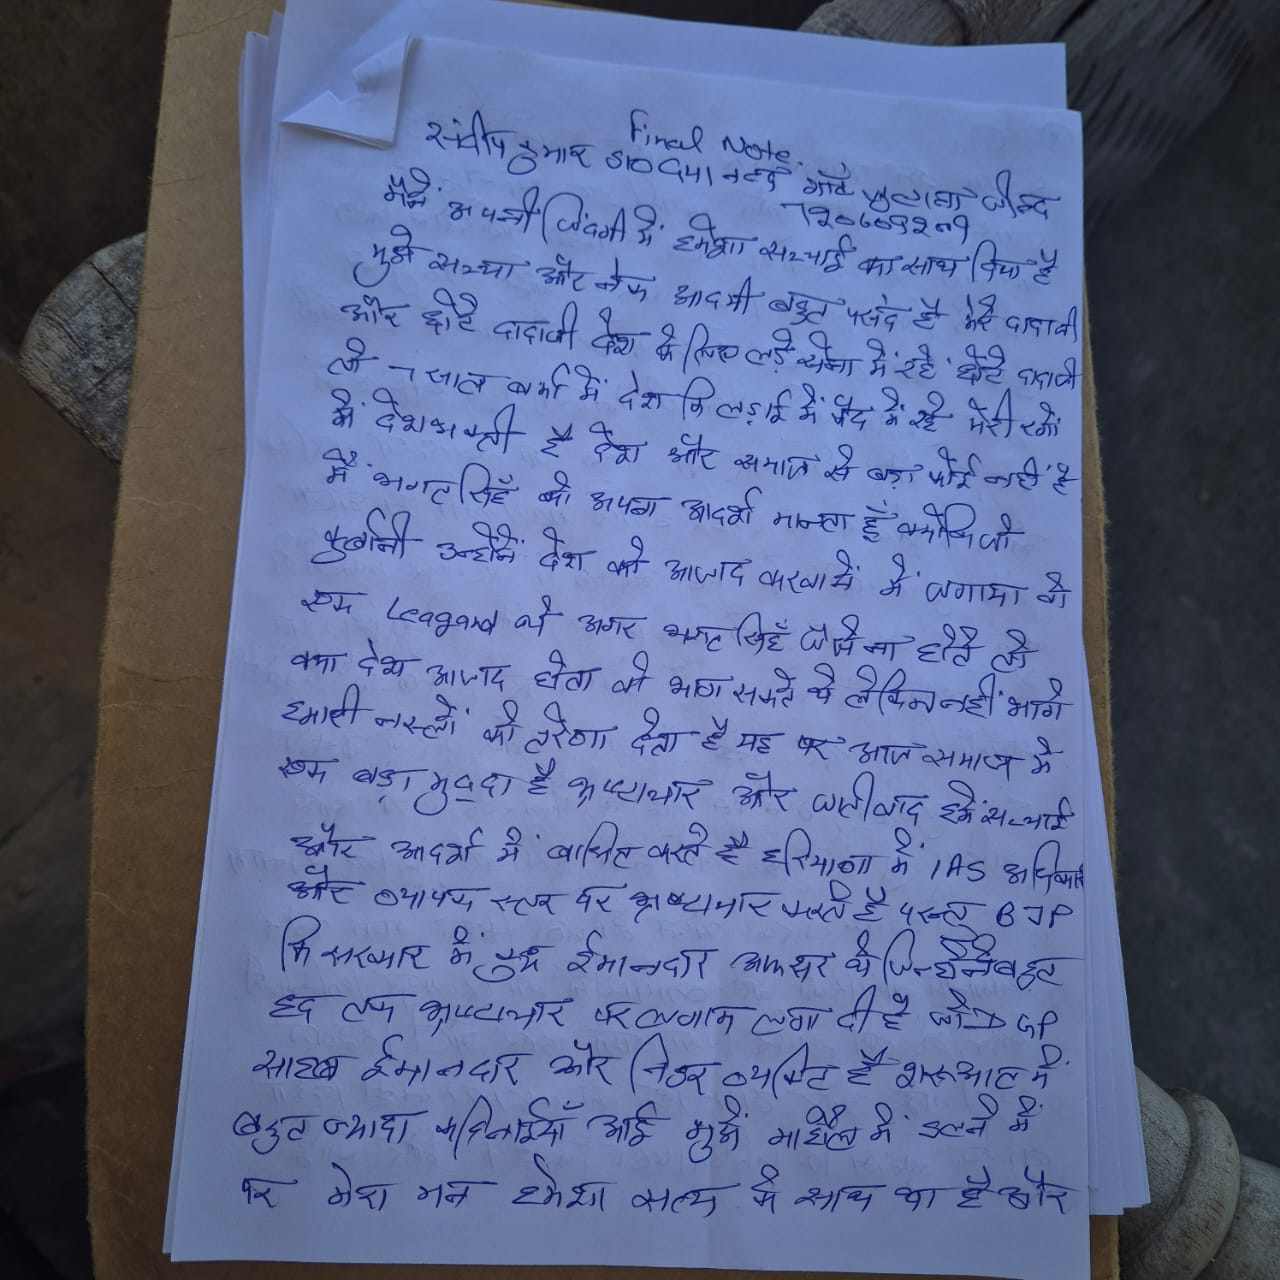 Final Note.
संदीप कुमार S/O दयानन्द गाँव जुलाना जीन्द
7206092
मैंने अपनी जिंदगी में हमेशा सच्चाई का साथ दिया है
मुझे सच्चा और नेक आदमी बहुत पसंद है मेरे दादाजी
और छोटे दादाजी देश के लिए लड़े सेना में रहे छोटे दादाजी
तो 7 साल बर्मा में देश कि लड़ाई में कैद में रहे मेरी रगों
में देशभक्ती है देश और समाज से बड़ा कोई नहीं है
मैं भगत सिहँ को अपना आदर्श मानता हूँ क्योंकि जो
कुर्बानी उन्होंनें देश को आजाद करवाने में लगाया वो
एक Leagand थे अगर भगत सिहँ जैसे ना होते तो
क्या देश आजाद होता वो भाग सकते थे लेकिन नहीं भागे
हमारी नस्लों को प्रेरणा देता है यह पर आज समाज में
एक बड़ा मुद्दा है भ्रष्टाचार और जातीवाद हमें सच्चाई
और आदर्श में बाधित करते है हरियाणा में IAS अधिकारी
और व्यापक स्तर पर भ्रष्टाचार करते है परन्तु BJP
कि सरकार में कुछ ईमानदार अफसर थे जिन्होंने बहुत
हद तक भ्रष्टाचार पर लगाम लगा दी है जो DGP
साहब ईमानदार और निडर व्यक्ति है शरूआत में
बहुत ज्यादा कठिनाईयाँ आई मुझे माहौल में ढलने में
पर मेरा मन हमेशा सत्य के साथ था है और